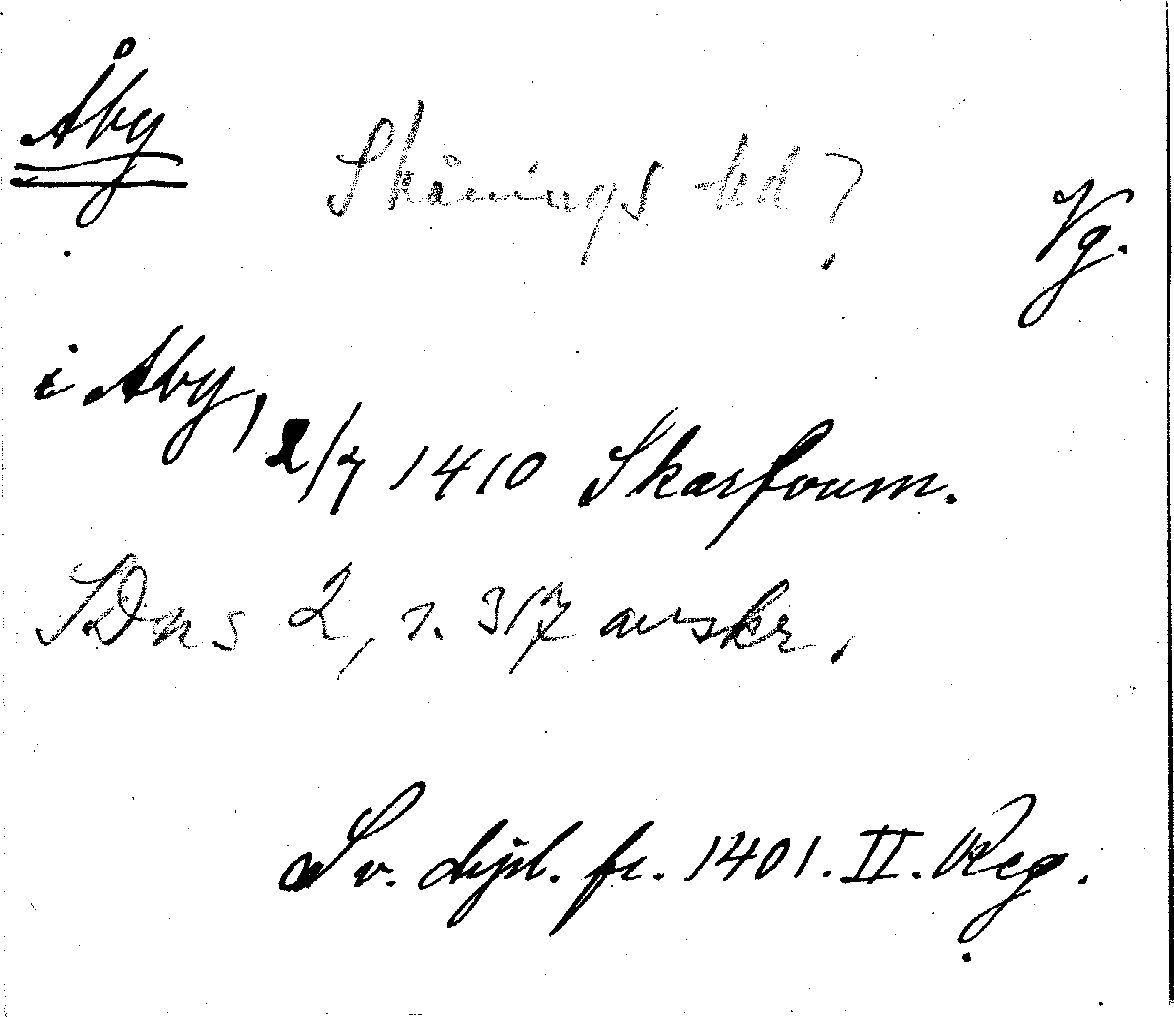 Åby Skånings hd? Vg.
i Aby, 2/7 1410 Skarfoum.
SDns 2, s. 317 avskr.
Sv. dipl. fr. 1401. II. Reg.